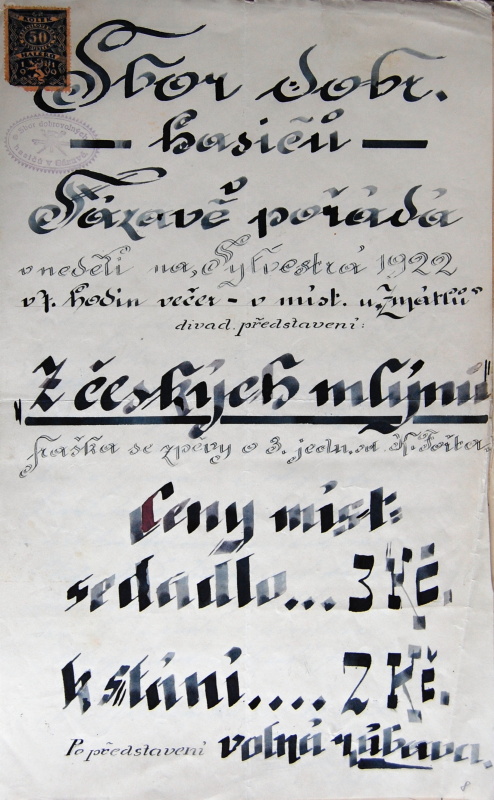 KOLEK
50
HALÉŘŮ
Sbor dobrovolných
hasičů v Sázavě
Sbor dobr.
— hasičů —
v Sázavě pořádá
v neděli na „Sylvestra 1922
v 7. hodin večer - v míst. u „Zmátlů"
divad. představení:
„Z českých mlýnů"
fraška se zpěvy o 3. jedn. od K.
Ceny míst:
sedadlo... 3 Kč.
k stání.... 2 Kč.
Po představení volná zábava.
8